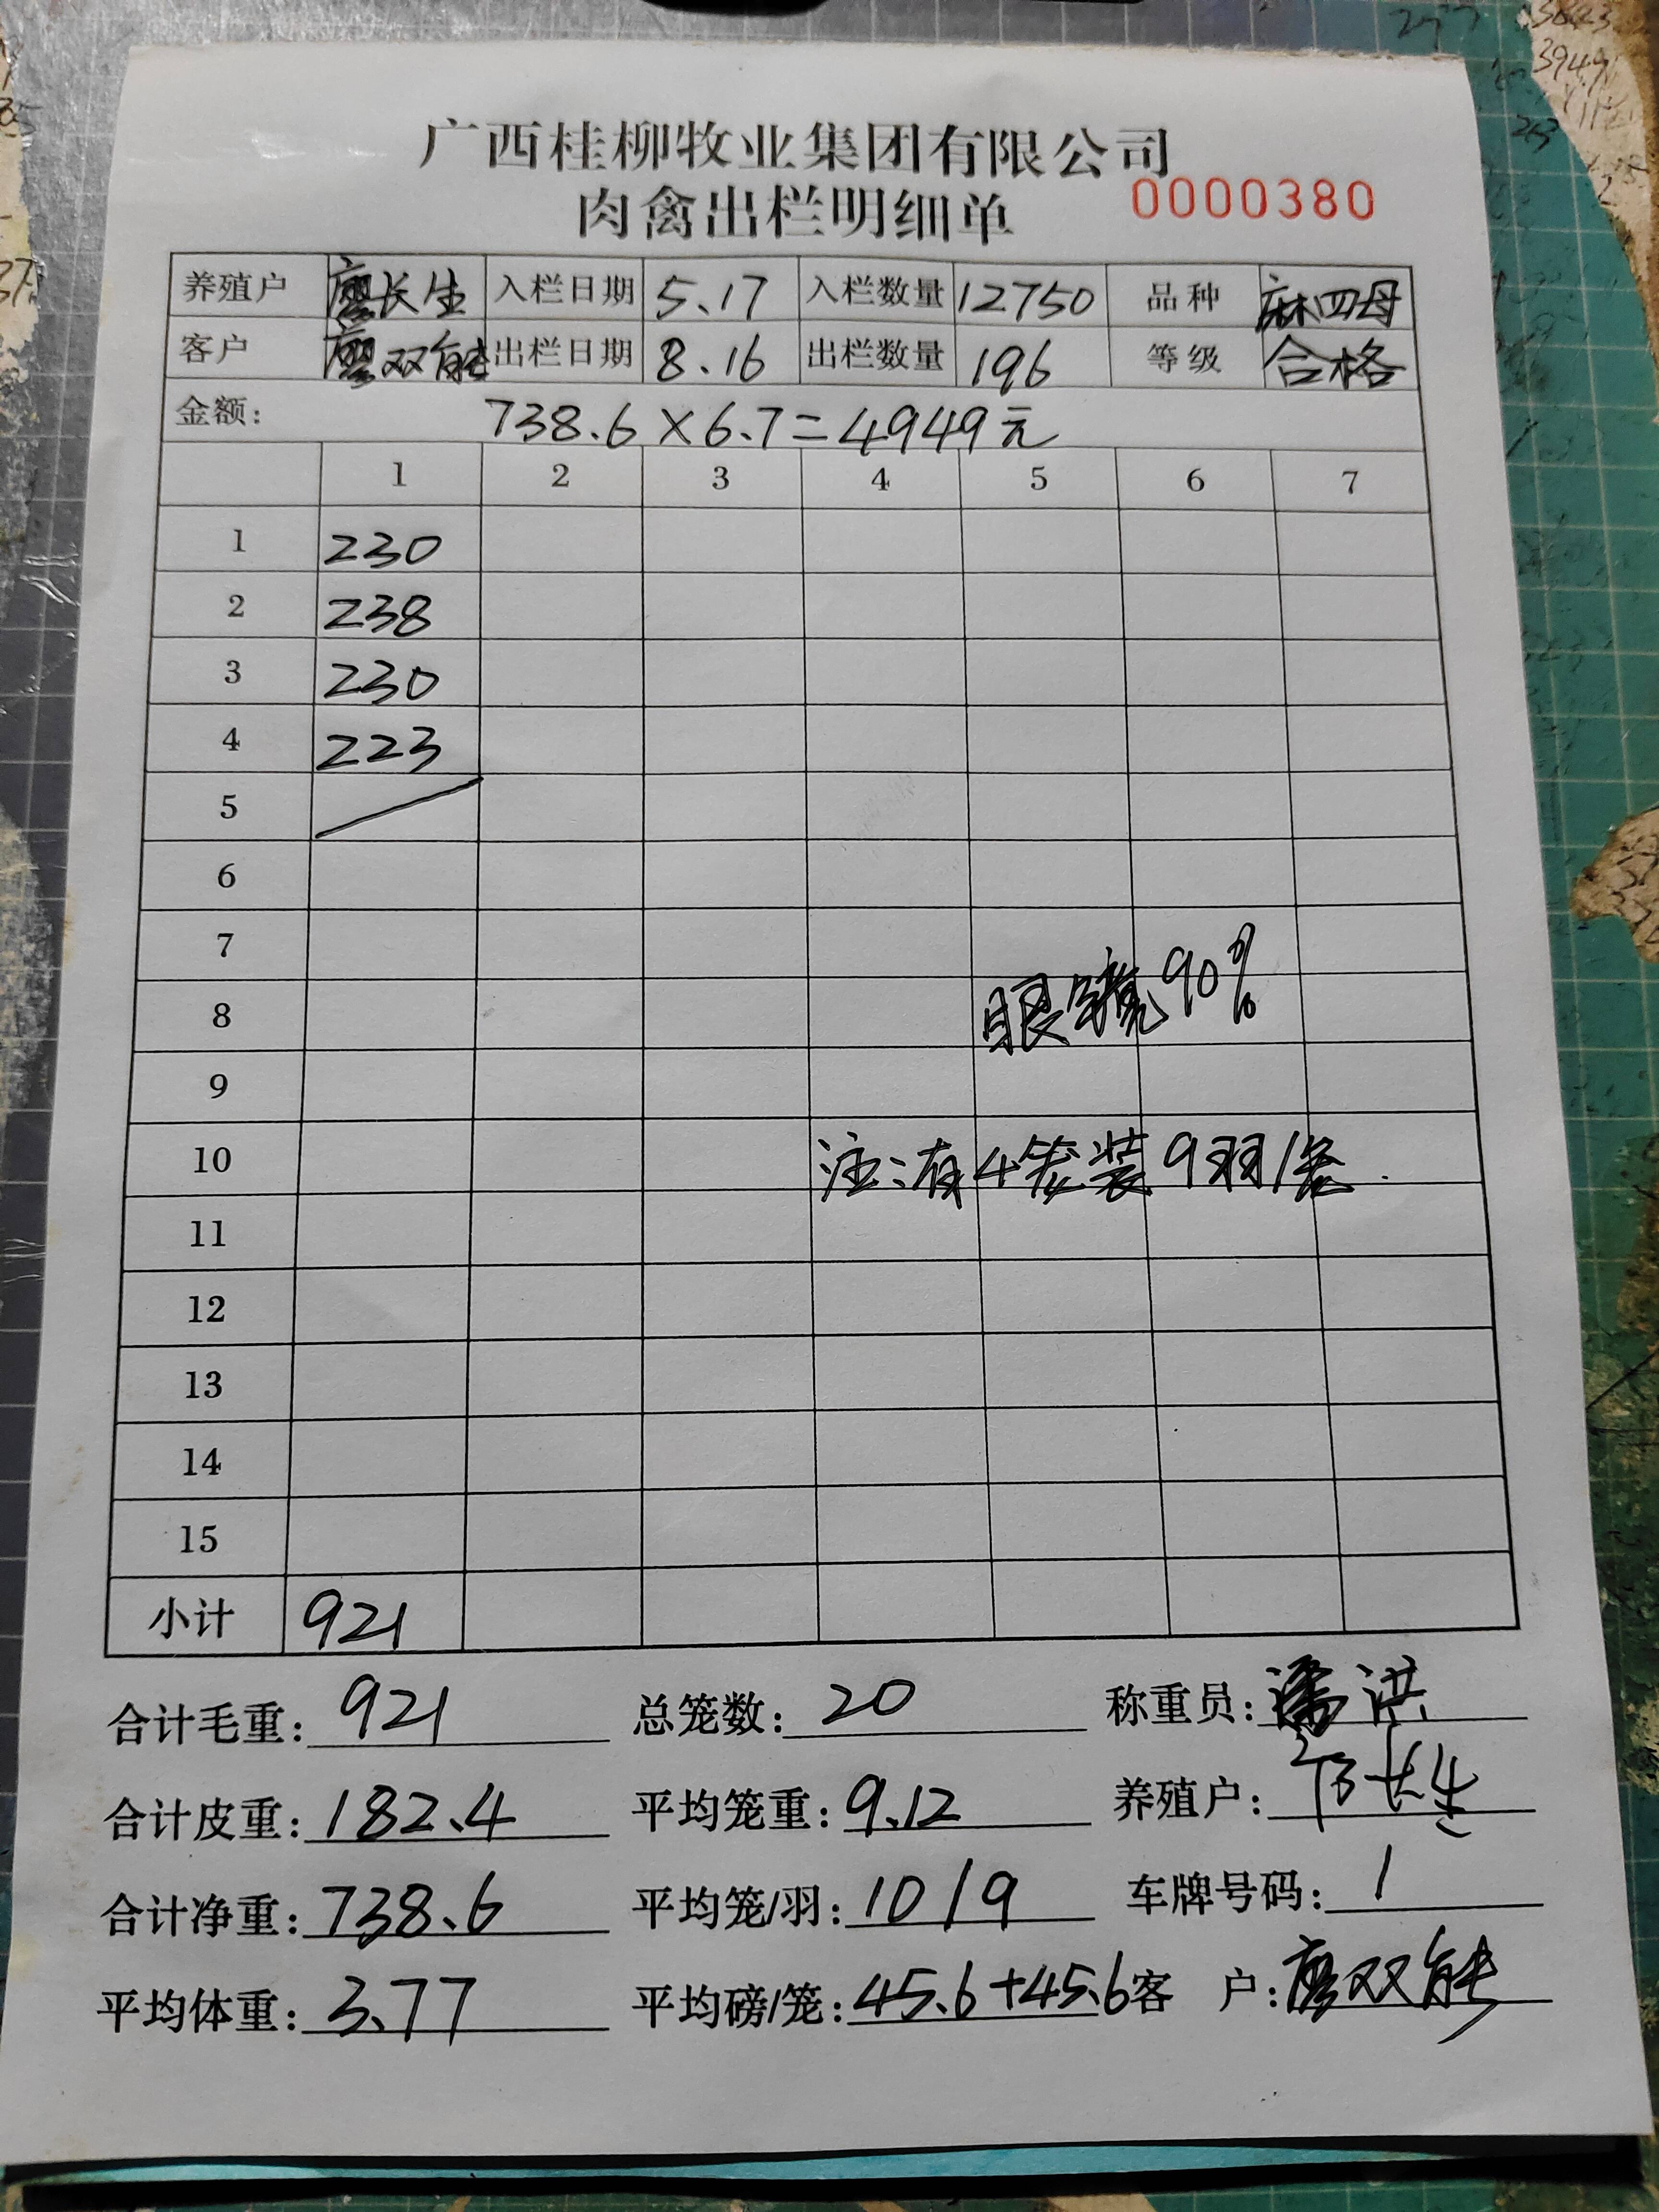 广西桂柳牧业集团有限公司
肉禽出栏明细单 0000380
养殖户 廖长生 入栏日期 5.17 入栏数量 12750 品种 麻四母
客户 廖双能 出栏日期 8.16 出栏数量 196 等级 合格
金额: 738.6×6.7=4949元
1 2 3 4 5 6 7
1 230
2 238
3 230
4 223
5
6
7
眼镜90%
8
9
10 注:有4笼装9羽/笼.
11
12
13
14
15
小计 921
合计毛重: 921 总笼数: 20 称重员: 潘洪
合计皮重: 182.4 平均笼重: 9.12 养殖户: 长生
合计净重: 738.6 平均笼/羽: 10/9 车牌号码: 1
平均体重: 3.77 平均磅/笼: 45.6+45.6 客户: 廖双能